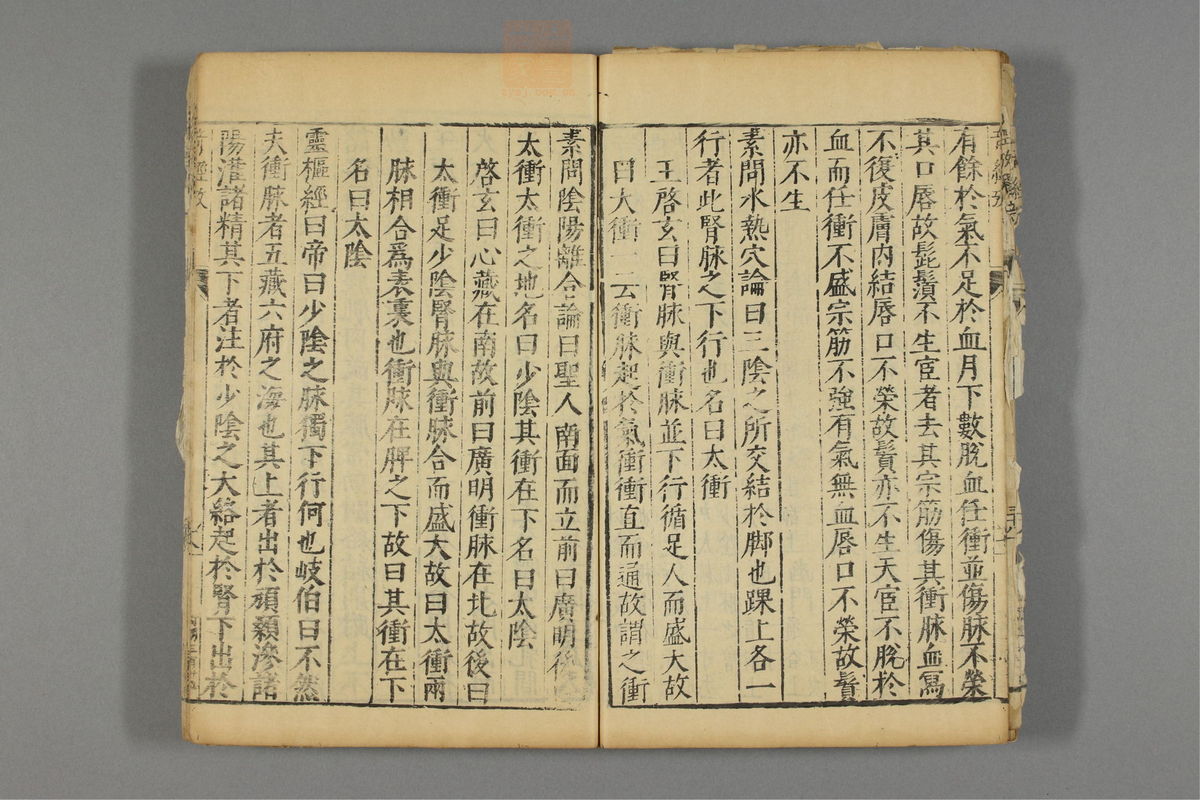 有餘於氣不足於血月下數脫血任衝並傷脉不榮
其口唇故髭鬚不生宦者去其宗筋傷其衝脉血寫
不復皮膚內結唇口不榮故鬚亦不生天宦不脫於
血而任衝不盛宗筋不強有氣無血唇口不榮故鬚
亦不生
素問水熱穴論曰三陰之所交結於脚也踝上各一
行者此腎脉之下行也名曰太衝
王啓玄曰腎脉與衝脉並下行循足人而盛大故
曰太衝一云衝脉起於氣衝衝直而通故謂之衝
素問陰陽離合論曰聖人南面而立前曰廣明後曰
太衝太衝之地名曰少陰其衝在下名曰太陰
啓玄曰心藏在南故前曰廣明衝脉在北故後曰
太衝足少陰腎脉與衝脉合而盛大故曰太衝兩
脉相合爲表裏也衝脉在脾之下故曰其衝在下
名曰太陰
靈樞經曰帝曰少陰之脉獨下行何也岐伯曰不然
夫衝脉者五藏六府之海也其上者出於頏顙滲諸
陽灌諸精其下者注於少陰之大絡起於腎下出於